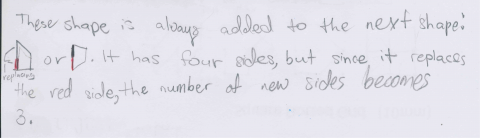 These shape is always added to the next shape:
or . It has four sides, but since it replaces
replaces
the red side, the number of new sides becomes
3.